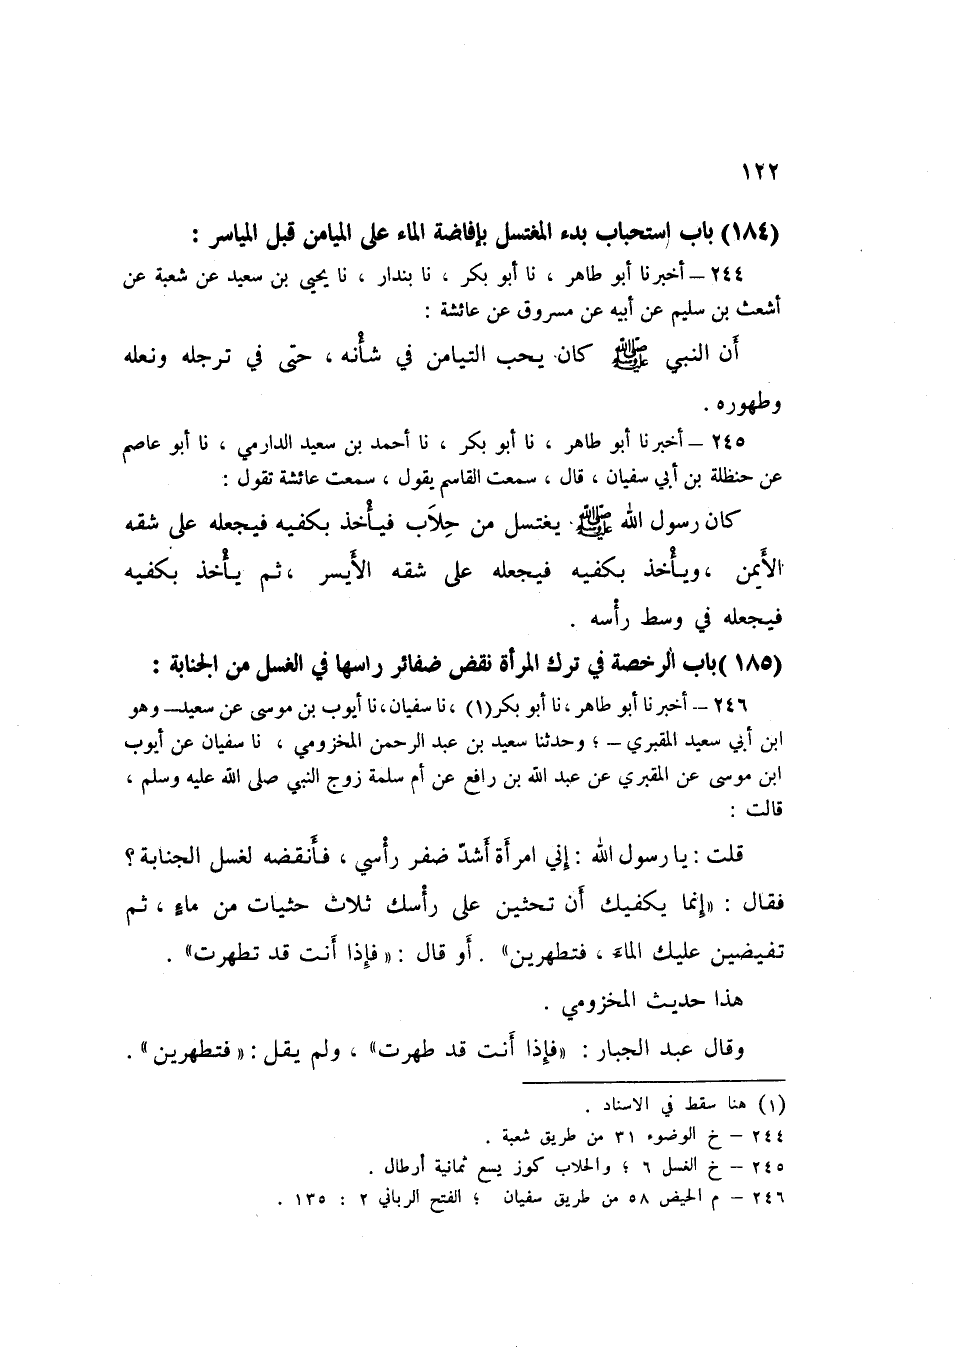 ١٢٢
(١٨٤) باب إستحباب بدء المغتسل بإفاضة الماء على الميامن قبل المياسر :
٢٤٤ – أخبرنا أبو طاهر ، نا أبو بكر ، نا بندار ، نا يحيى بن سعيد عن شعبة عن
أشعث بن سليم عن أبيه عن مسروق عن عائشة :
أن النبي ﷺ كان يحب التيامن في شأنه ، حتى في ترجله ونعله
وطهوره .
٢٤٥ – أخبرنا أبو طاهر ، نا أبو بكر ، نا أحمد بن سعيد الدارمي ، نا أبو عاصم
عن حنظلة بن أبي سفيان ، قال ، سمعت القاسم يقول ، سمعت عائشة تقول :
كان رسول الله ﷺ يغتسل من حِلَاب فيأخذ بكفيه فيجعله على شقه
الأيمن ، ويأخذ بكفيه فيجعله على شقه الأيسر ، ثم يأخذ بكفيه
فيجعله في وسط رأسه .
(١٨٥) باب الرخصة في ترك المرأة نقض ضفائر راسها في الغسل من الجنابة :
٢٤٦ – أخبرنا أبو طاهر ، نا أبو بكر(١) ، نا سفيان ، نا أيوب بن موسى عن سعيد – وهو
ابن أبي سعيد المقبري – ؛ وحدثنا سعيد بن عبد الرحمن المخزومي ، نا سفيان عن أيوب
ابن موسى عن المقبري عن عبد الله بن رافع عن أم سلمة زوج النبي صلى الله عليه وسلم ،
قالت :
قلت : يا رسول الله : إني امرأة أشدّ ضفر رأسي ، فأنقضه لغسل الجنابة ؟
فقال : «إنما يكفيك أن تحثين على رأسك ثلاث حثيات من ماءٍ ، ثم
تفيضين عليك الماءَ ، فتطهرين» . أو قال : « فإذا أنت قد تطهرت» .
هذا حديث المخزومي .
وقال عبد الجبار : «فإذا أنت قد طهرت» ، ولم يقل : « فتطهرين » .
(١) هنا سقط في الاسناد .
٢٤٤ – خ الوضوء ٣١ من طريق شعبة .
٢٤٥ – خ الغسل ٦ ؛ والحلاب كوز يسع ثمانية أرطال .
٢٤٦ – م الحيض ٥٨ من طريق سفيان ؛ الفتح الرباني ٢ : ١٣٥ .